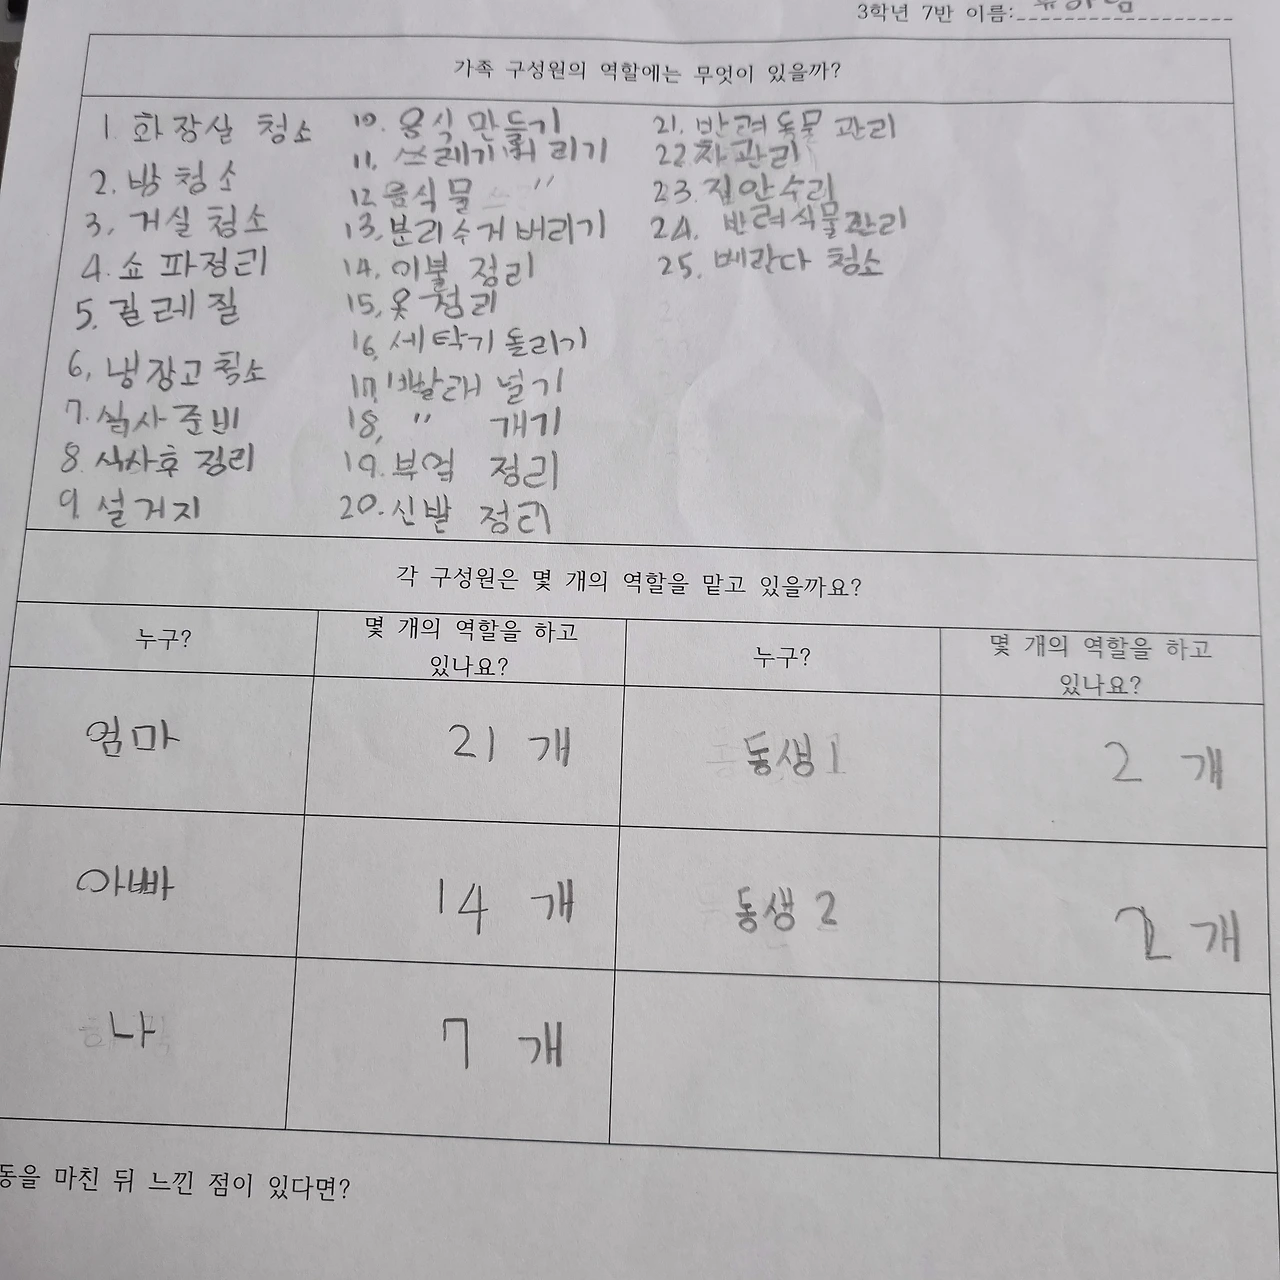 3학년 7반 이름:
가족 구성원의 역할에는 무엇이 있을까?
1. 화장실 청소
2. 방 청소
3. 거실 청소
4. 쇼파정리
5. 걸레질
6. 냉장고 청소
7. 식사 준비
8. 식사후 정리
9. 설거지
10. 음식 만들기
11. 쓰레기 버리기
12. 음식물 〃
13. 분리수거 버리기
14. 이불 정리
15. 옷 정리
16. 세탁기 돌리기
17. 빨래 널기
18. 〃 개기
19. 부엌 정리
20. 신발 정리
21. 반려동물 관리
22. 차 관리
23. 집안 수리
24. 반려식물관리
25. 베란다 청소
각 구성원은 몇 개의 역할을 맡고 있을까요?
누구? 몇 개의 역할을 하고 있나요? 누구? 몇 개의 역할을 하고 있나요?
엄마 21 개 동생1 2 개
아빠 14 개 동생2 2 개
나 7 개
동을 마친 뒤 느낀 점이 있다면?